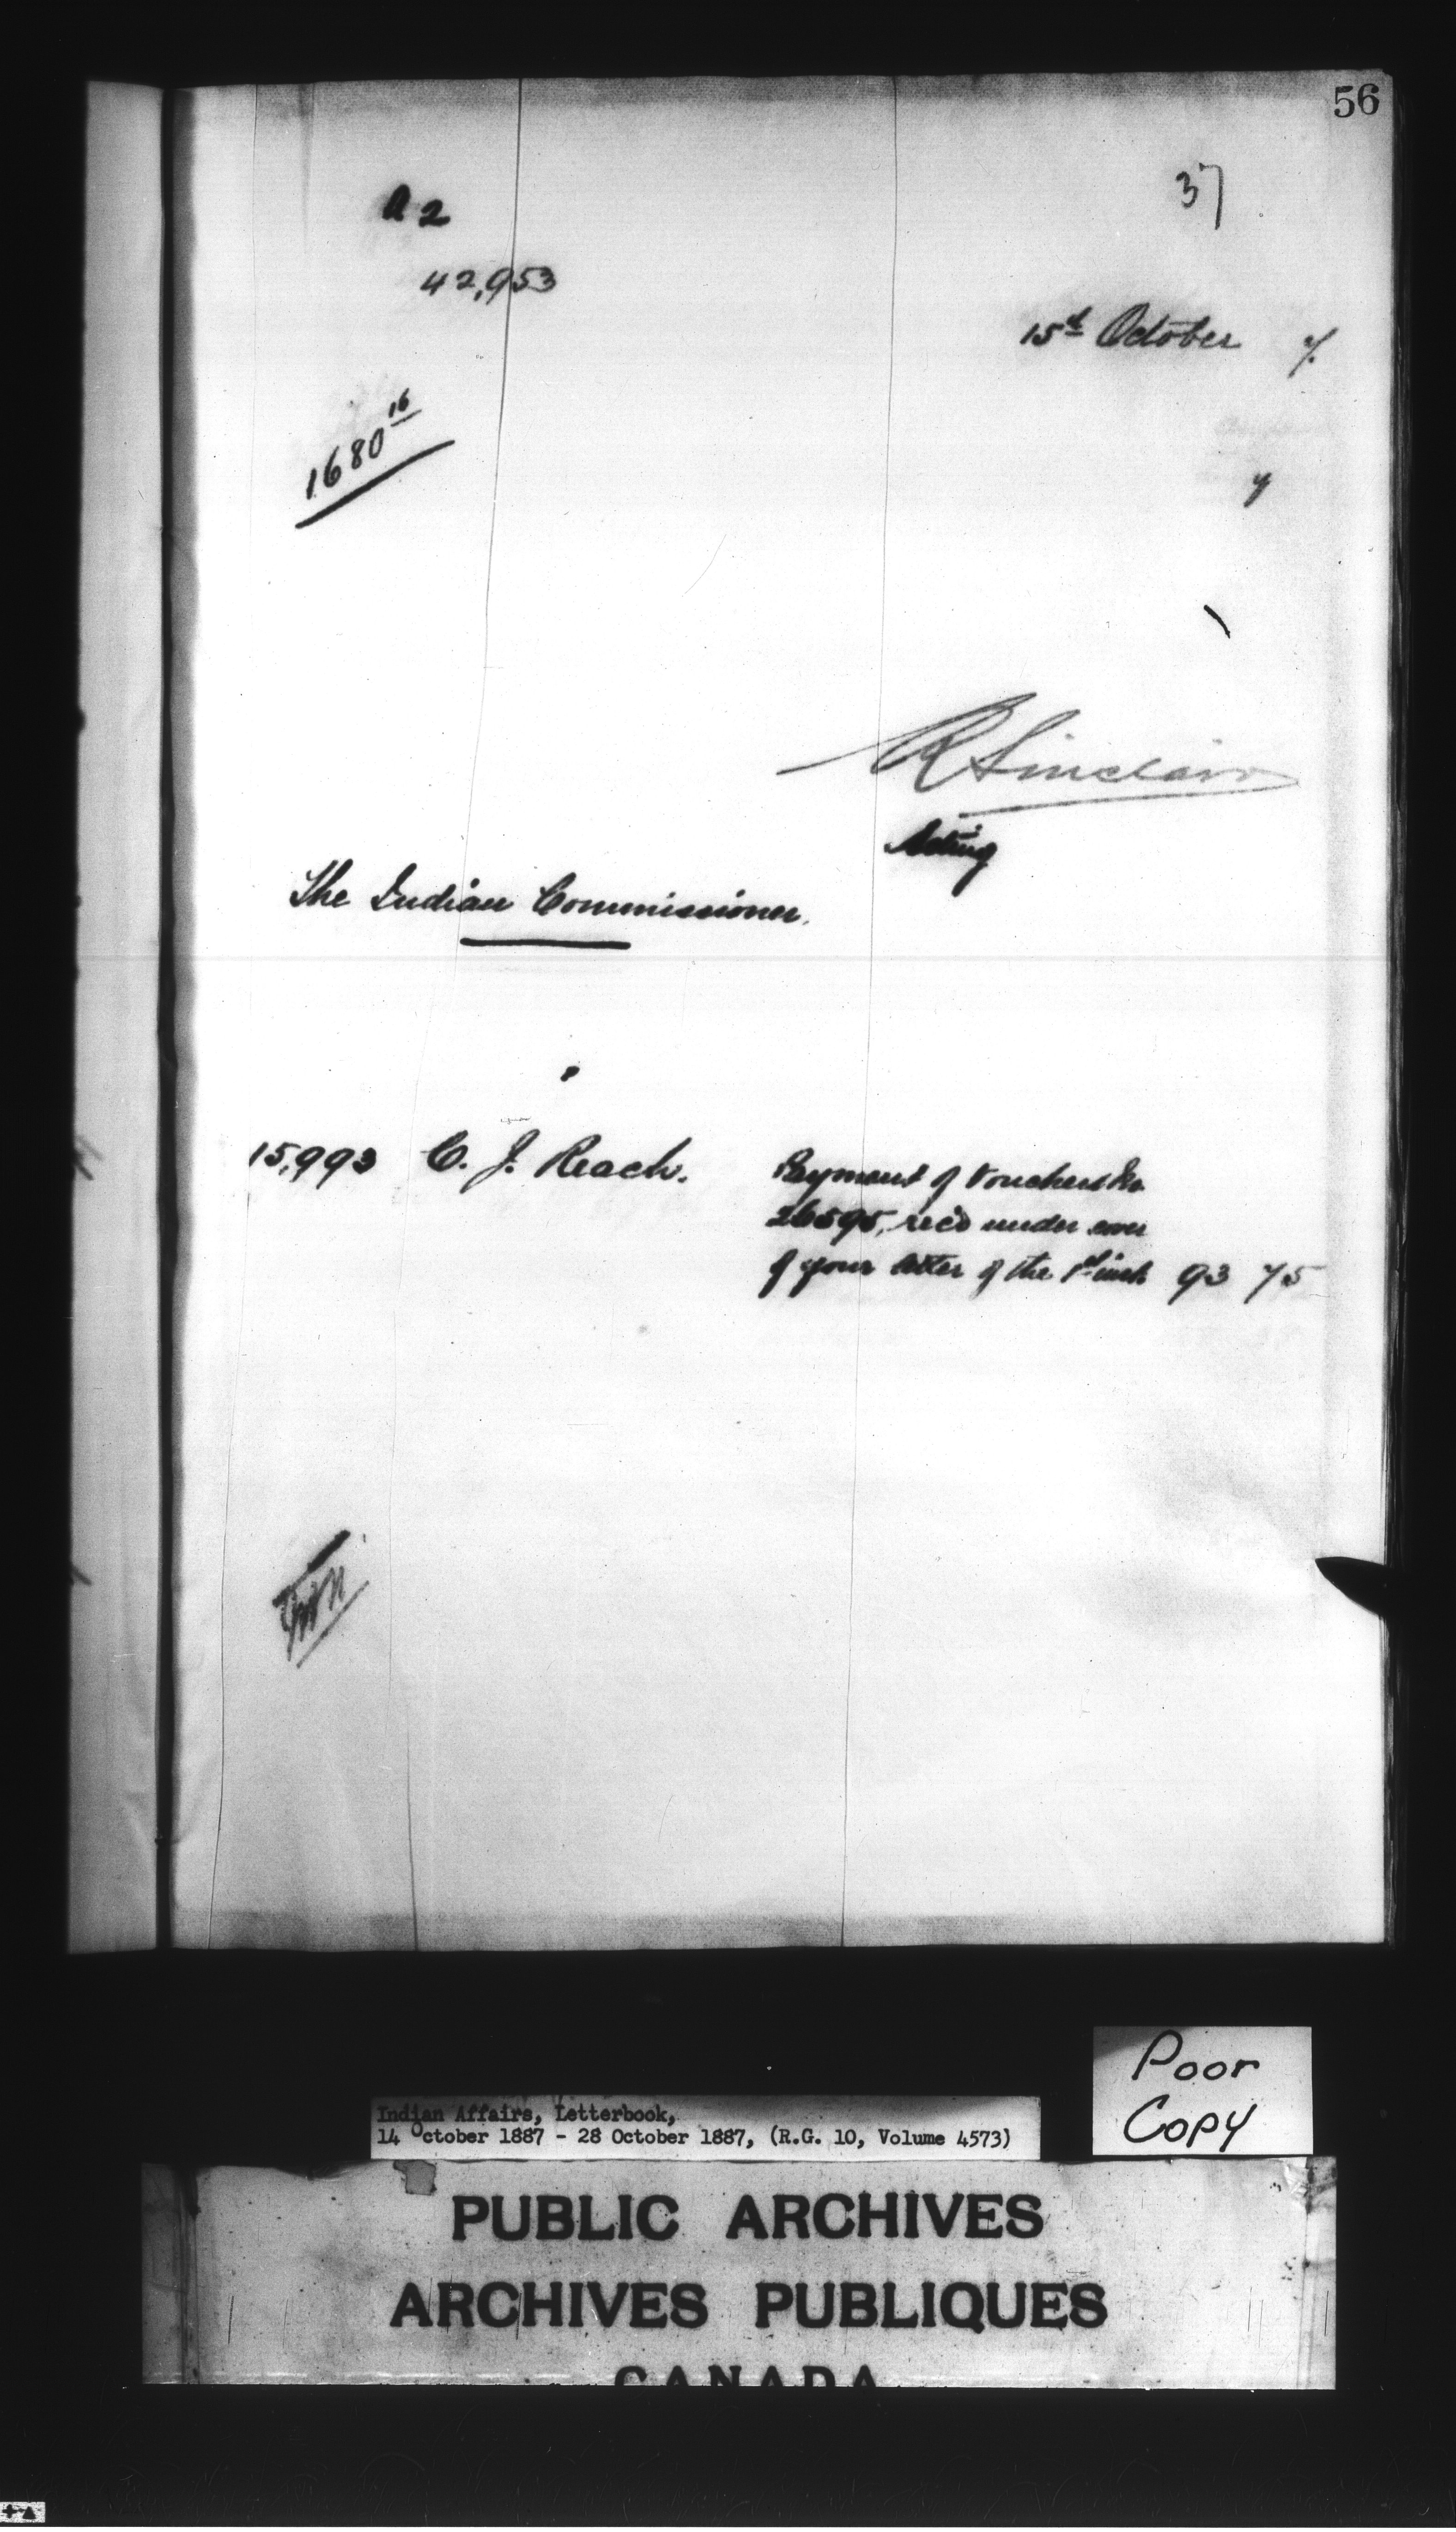 56
37
A 2
42,953
15th October 7.
1680 16
7
R Sinclair
Acting
The Indian Commissioner.
15,993 C. J. Reach. Payment of Voucher No.
26595, rec'd under cover
of your letter of the 1st inst 93 75
Poor
Copy
Indian Affairs, Letterbook,
14 October 1887 - 28 October 1887, (R.G. 10, Volume 4573)
PUBLIC ARCHIVES
ARCHIVES PUBLIQUES
CANADA